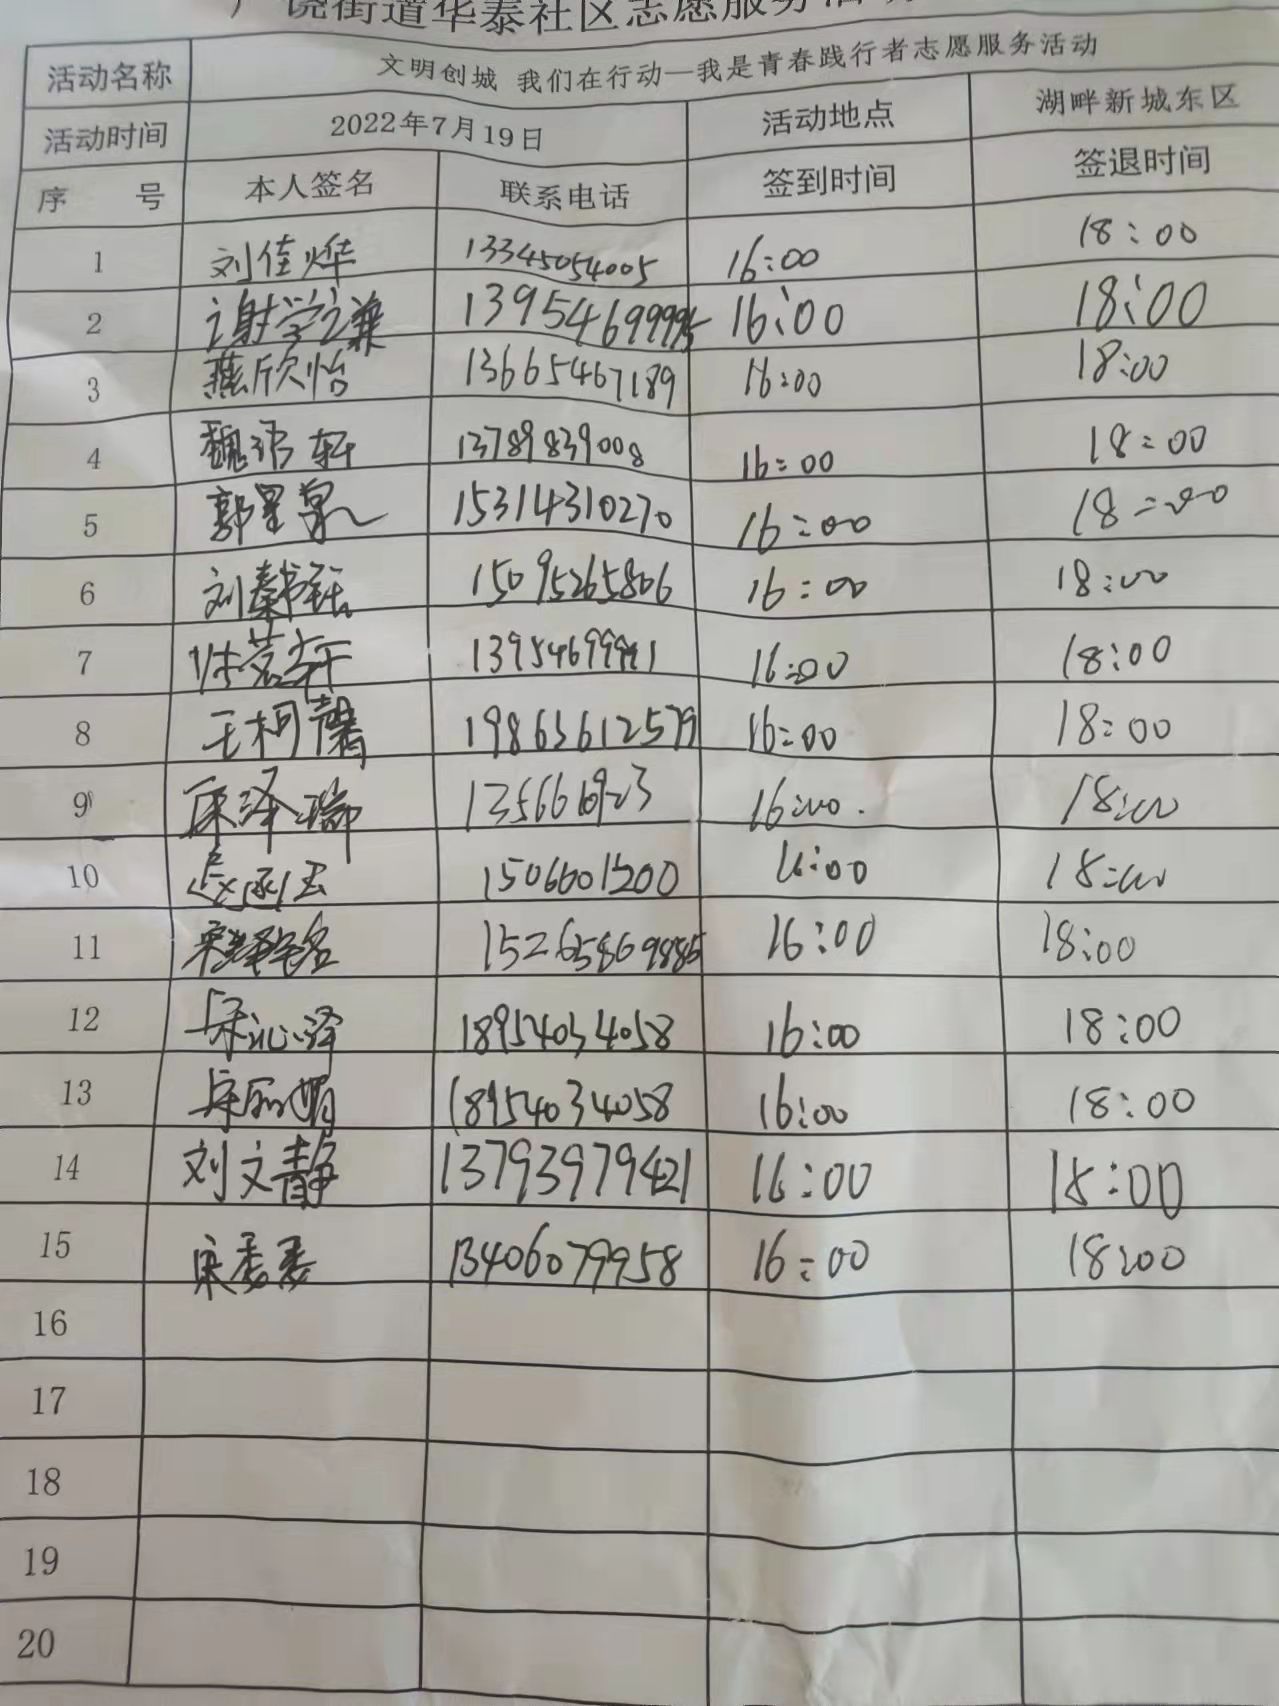 广饶街道华泰社区志愿服务活动
活动名称 文明创城 我们在行动—我是青春践行者志愿服务活动
活动时间 2022年7月19日 活动地点 湖畔新城东区
序号 本人签名 联系电话 签到时间 签退时间
1 刘佳烨 13345054005 16:00 18:00
2 谢学谦 16:00 18:00
3 燕欣怡 13665467189 16:00 18:00
4 13789839008 16:00 18:00
5 15314310270 16:00 18:00
6 15095265806 16:00 18:00
7 16:00 18:00
8 王柯馨 19863612579 16:00 18:00
9 宋泽瑞 16:00 18:00
10 16:00 18:00
11 16:00 18:00
12 宋沁泽 18954034058 16:00 18:00
13 18954034058 16:00 18:00
14 刘文静 13793979421 16:00 18:00
15 宋委委 13406079958 16:00 18:00
16
17
18
19
20